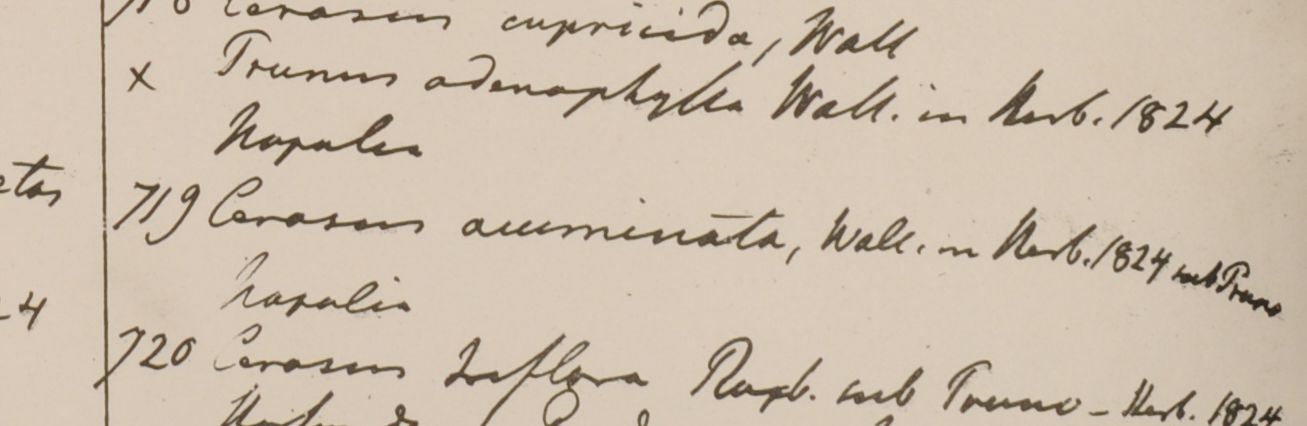 718 Cerasus cupricida, Wall
x Prunus adenophylla Wall. in Herb. 1824
Napalia
etas
719 Cerasus acuminata, Wall. in Herb. 1824 sub Pruno
Napalia
24
720 Cerasus triflora Roxb. sub Pruno - Herb. 1824